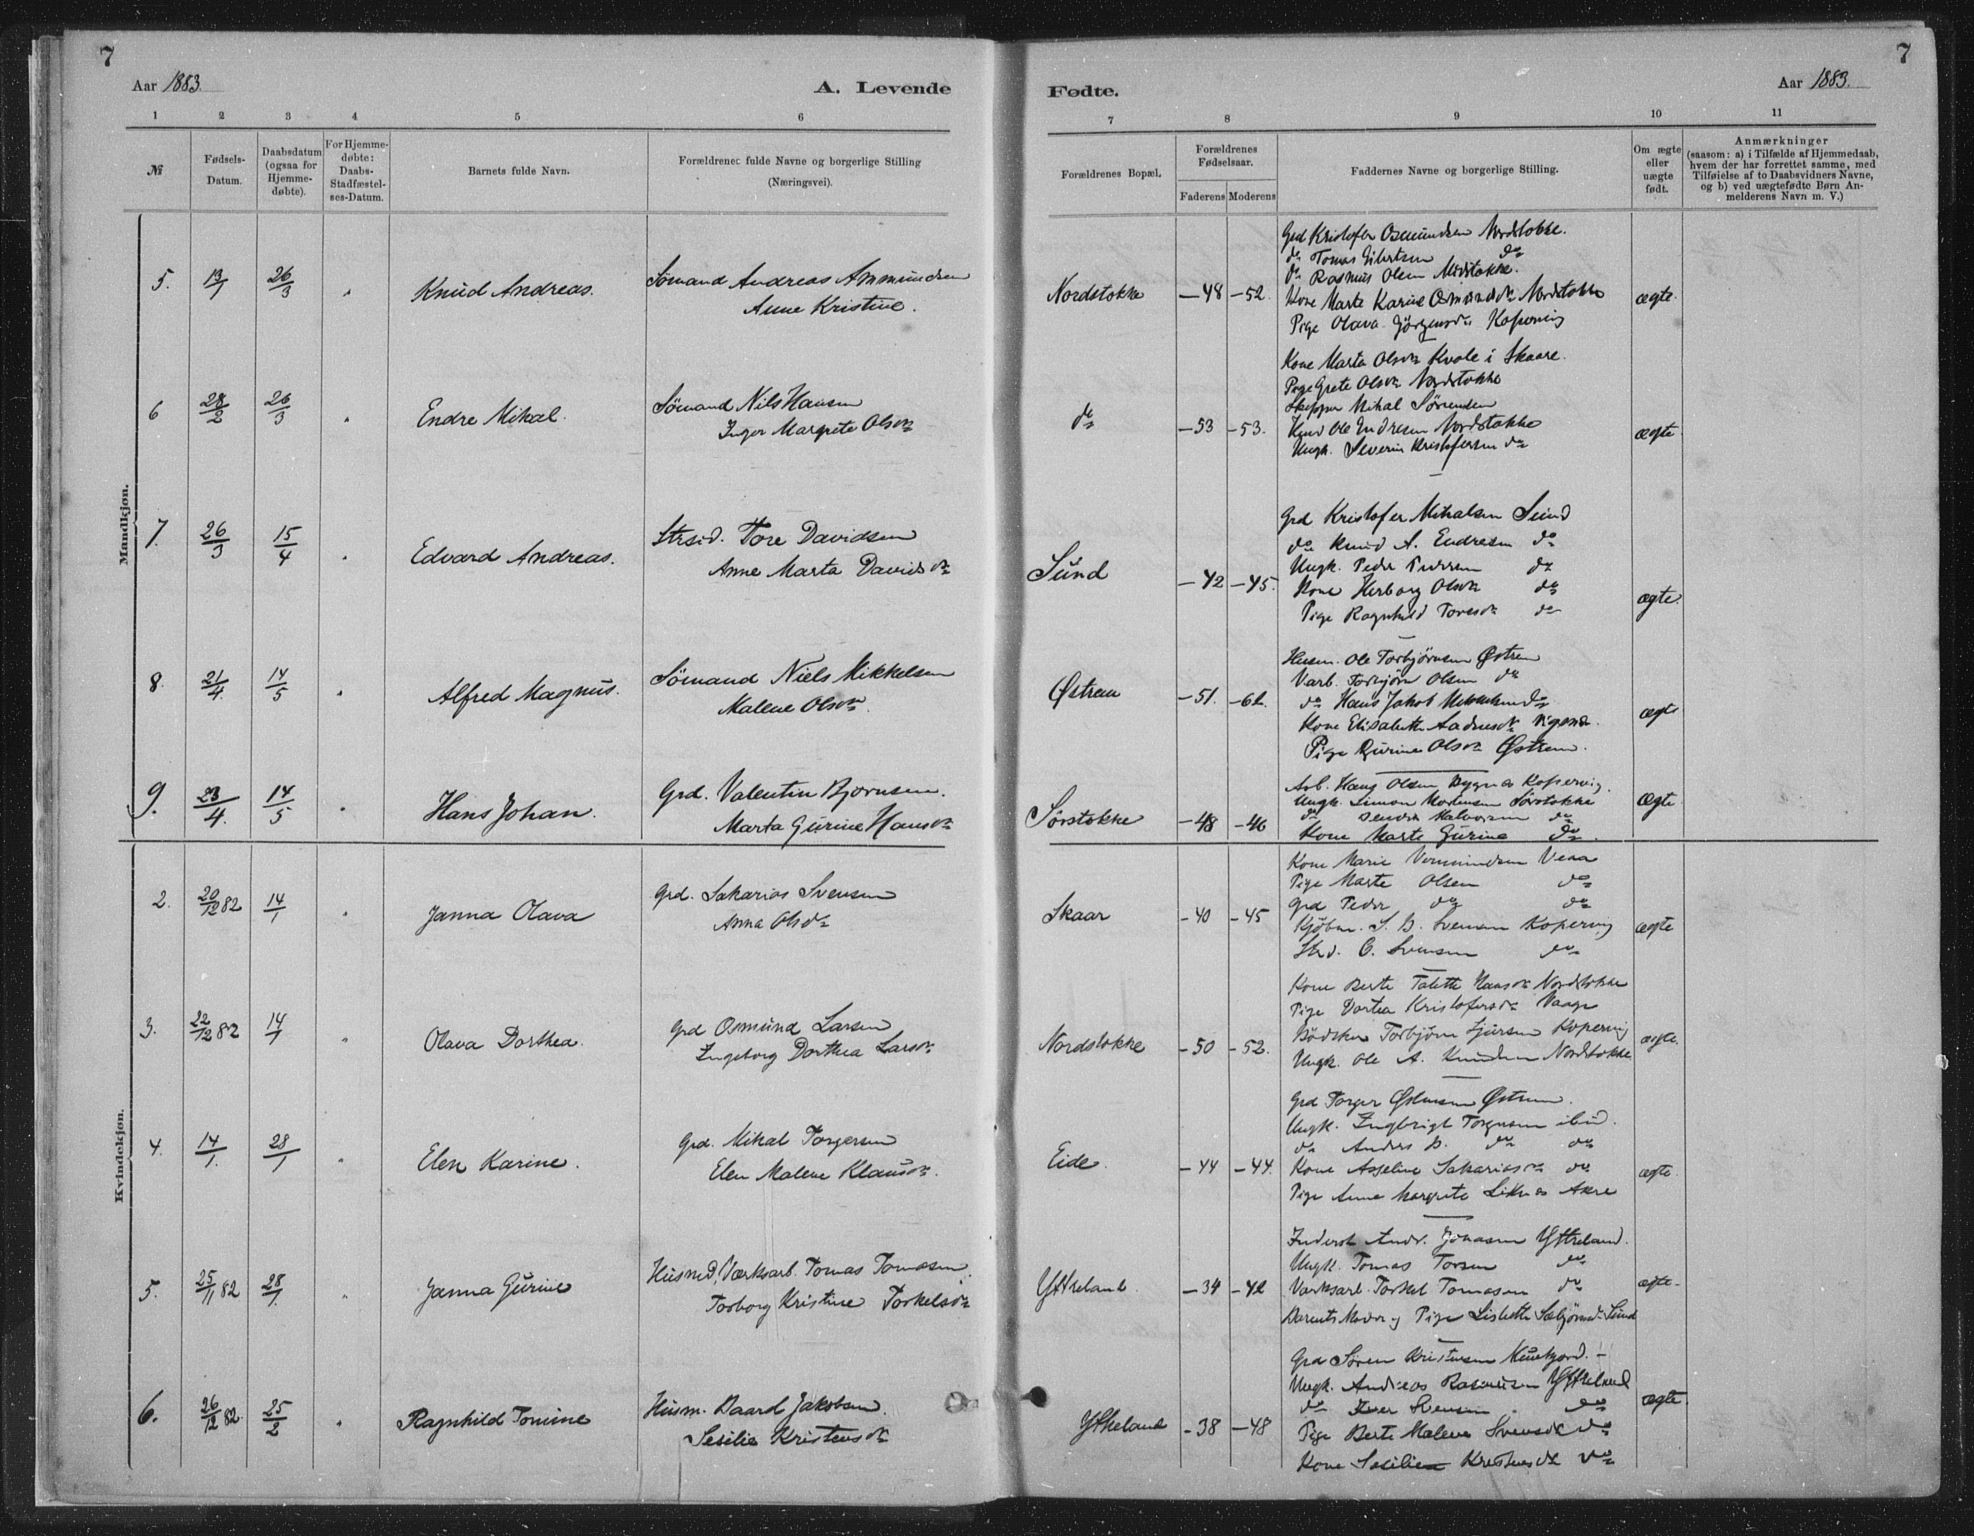 7
Aar 1883.
A. Levende
1 2 3 4 5 6
№
Fødsels-Datum.
Daabsdatum (ogsaa for Hjemme-døbte).
For Hjemme-døbte: Daabs-Stadfæstel-ses-Datum.
Barnets fulde Navn.
Forældrenes fulde Navne og borgerlige Stilling (Næringsvei).
Mandkjøn.
5. 13/1 26/3 " Knud Andreas. Sømand Andreas Ammundsen
Anne Kristine.
6 28/2 26/3 " Endre Mikal. Sømand Nils Hansen
Inger Margrete Olsdr
7. 26/3 15/4 " Edvard Andreas. Strsid. Tore Davidsen
Anne Marta Davidsdr
8. 21/4. 14/5 " Alfred Magnus. Sømand Niels Mikkelsen
Malene Olsdr.
9. 23/4. 14/5 " Hans Johan. Grd. Valentin Bjørnsen.
Marta Gurine Hansdr
Kvindekjøn.
2. 20/12 82 14/1 " Janna Olava Grd. Sakarias Svensen
Anna Olsdr
3. 22/12 82 14/1 " Olava Dorthea. Grd Osmund Larsen
Ingeborg Dorthea Larsdr
4. 14/1. 28/1 " Elen Karine. Grd. Mikal Torgersen
Elen Malene Klausdr.
5. 25/11 82 28/1. " Janna Gurine Husmd, Værksarb. Tomas Tomasen.
Torborg Kristine Torkelsdr
6. 26/12 82. 25/2 " Ragnhild Tomine Husm. Baard Jakobsen.
Sesilie Kristensdr
7
Fødte.
Aar 1883.
7 8 9 10 11
Forældrenes Bopæl.
Forældrenes Fødselsaar.
Faderens Moderens
Faddernes Navne og borgerlige Stilling.
Om ægte eller uægte født.
Anmærkninger
(saasom: a) i Tilfælde af Hjemmedaab, hvem der har forrettet samme, med Tilføielse af to Daabsvidners Navne, og b) ved uægtefødte Børn An-melderens Navn m. V.)
Grd Kristofer Osmundsen Nordstokke.
do Tomas Eilertsen do
do Rasmus Olsen Midstokke.
Nordstokke -48 -52. Kone Marte Karine Osmundsdr Nordstokke ægte.
Pige Olava Jörgensdr Kopervig
Kone Marta Olsdr Kvale i Skaare.
Pige Grete Olsdr Nordstokke
Skipper Mikal Sørensen
do -53 -53. Ole Endresen Nordstokke ægte
Ungk. Severin Kristofersen do
Grd Kristofer Mikalsen Sund
do Knud A. Endresen do
Ungk. Peder Pedersen do
Sund -42 -45. Kone Herborg Olsdr do ægte.
Pige Ragnhild Toresdr do
Husm. Ole Torbjørnsen Østrem
Varb. Torbjørn Olsen do
Østrem -51. -62. do Hans Jakob Mikkelsen do ægte
Kone Elisabeth
Pige Gurine Olsdr Østrem.
Arb. Hans Olsen Bygnes Kopervig.
Ungk. Simon Mortensen Sørstokke ægte
Sørstokke -48 -46 do do
Kone Marte Gurine do.
Kone Marie Vermundsen Veaa
Pige Marte Olsen do
Skaar -40 -45 Grd Peder do do ægte
Kjøbm. S. B. Svensen Kopervig
O. Svensen do
Kone Berte Talette Hansdr Nordstokke
Pige Dortea Kristofersdr Vaage
Nordstokke -50 -52. Torbjørn Sjursen Kopervig ægte.
Ungk. Ole A. Knudsen Nordstokke
Grd Torger Østensen Østrem.
Ungk. Ingbrigt Torgersen ibid.
do Anders B. do do
Eide. -44 -44. Kone Asseline Sakariasdr do ægte
Pige Anne Margrete Liknes Akre
Inderst Andr. Jonasen Yttreland.
Ungk. Tomas Torsen do
Yttreland. -34 -42 Værksarb Torkel Tomasen do ægte.
Barnets Moder og Pige Lisbette Sæbjørnsd. Sund
Grd Søren Kristensen
Ungk. Andreas Rasmusen Yttreland
do Iver Svensen do ægte.
Yttreland -38 -48 Pige Berte Malene Svensdr do
Kone Sesilie Kristensdr do